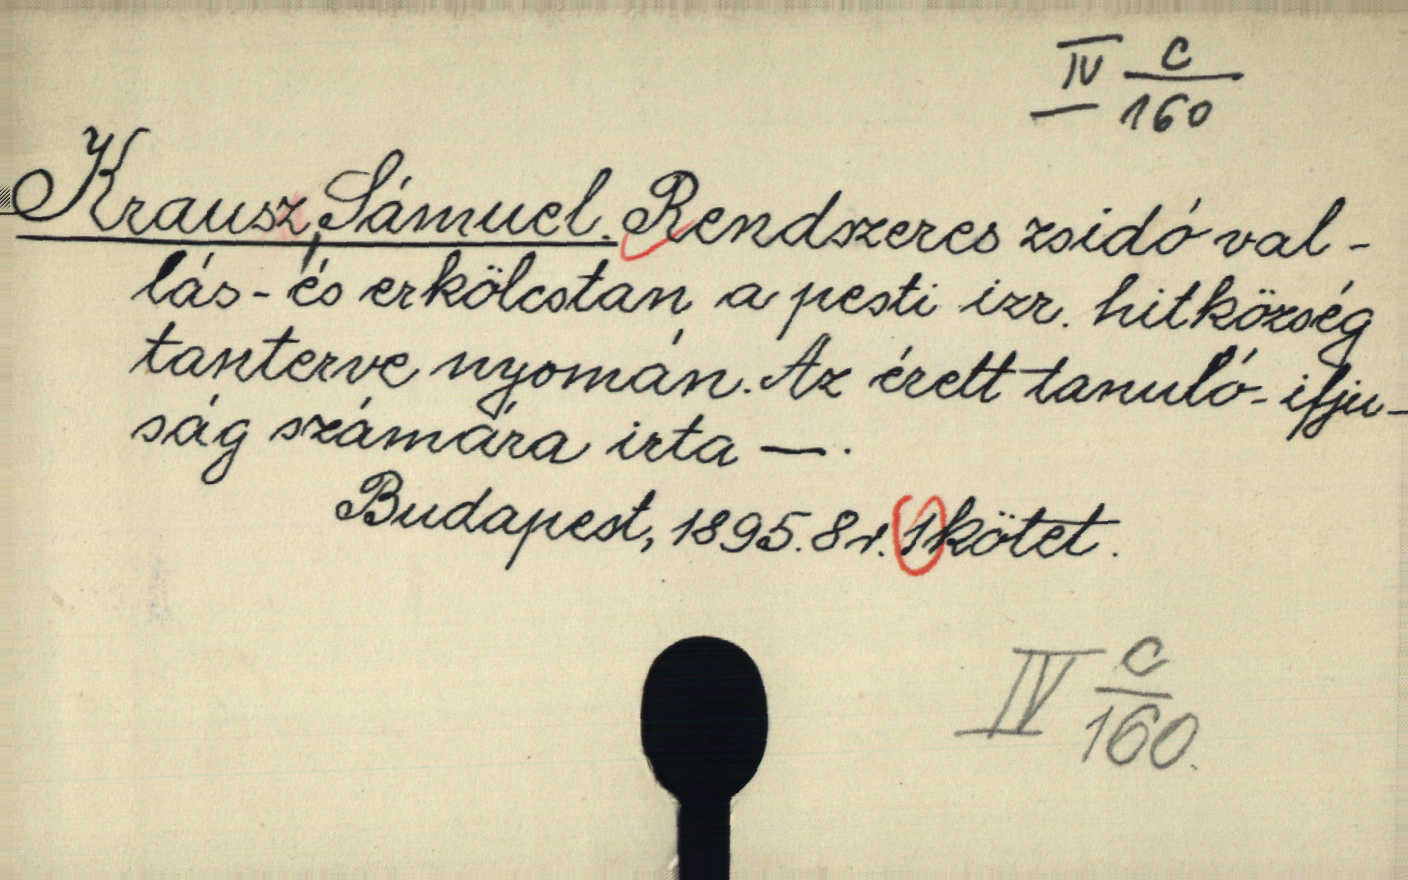 IV c
160
Krausz, Sámuel. Rendszeres zsidó val-
lás- és erkölcstan a pesti izr. hitközség
tanterve nyomán. Az érett tanuló- ifju-
ság számára irta —.
Budapest, 1895. 8r. 1 kötet.
IV c
160.